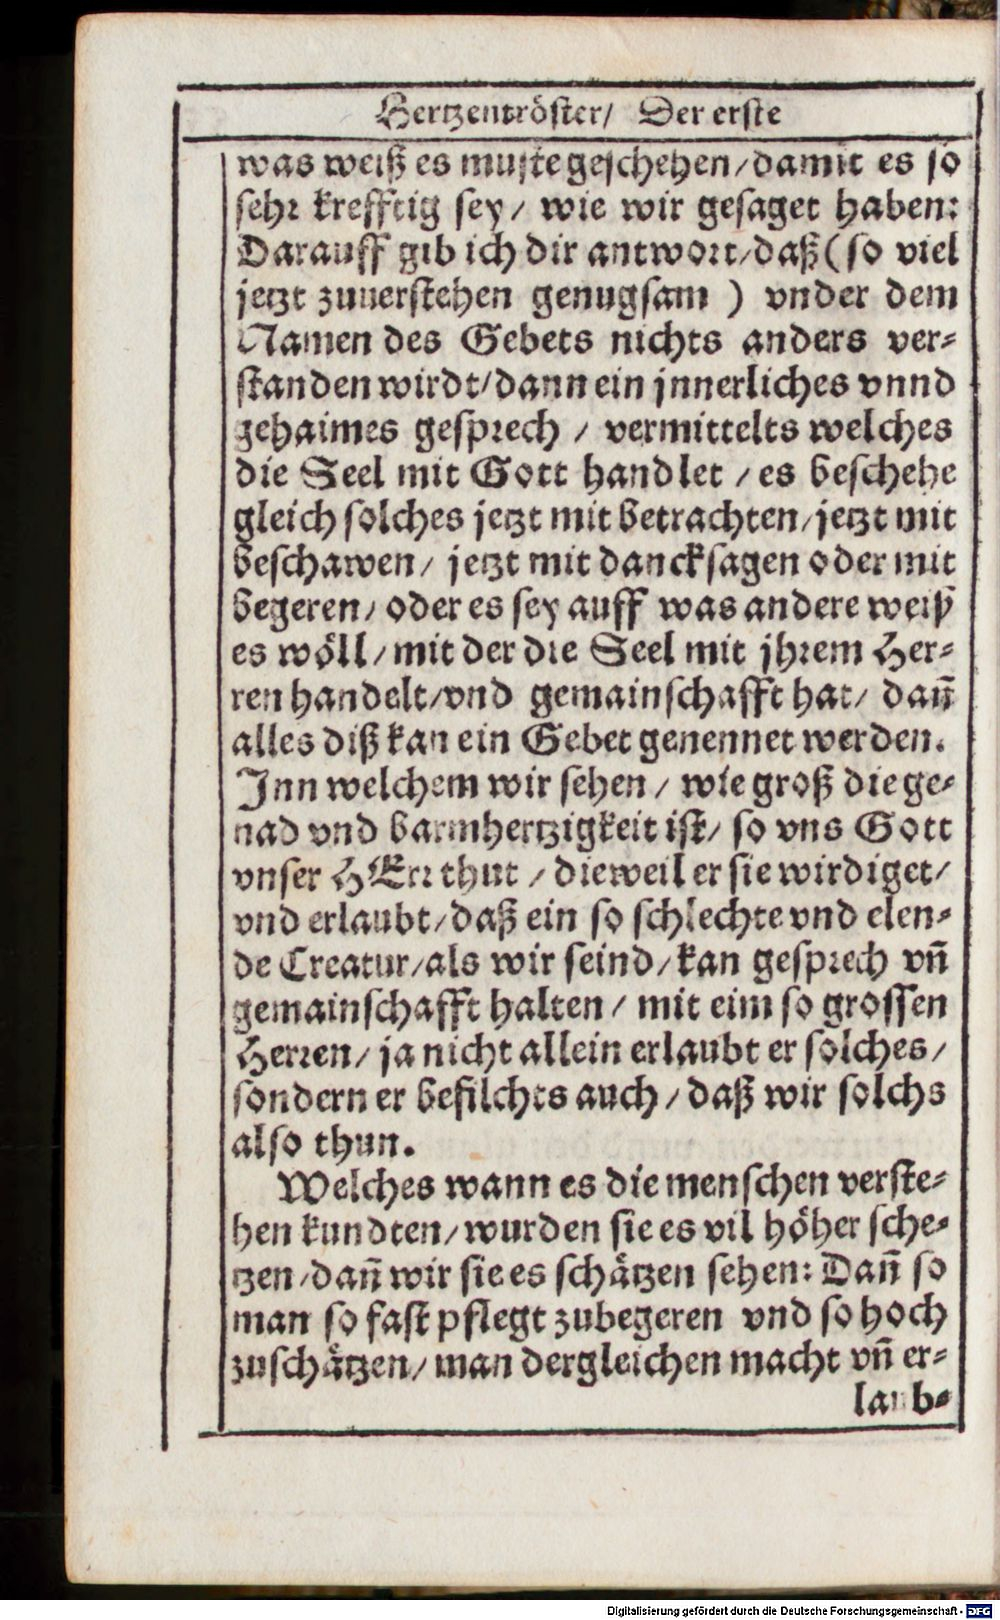 Hertzentröster/ Der erste
was weiß es muste geschehen/damit es so
sehr krefftig sey/ wie wir gesaget haben:
Darauff gib ich dir antwort/daß (so viel
jetzt zuuerstehen genugsam ) vnder dem
Namen des Gebets nichts anders ver-
standen wirdt/dann ein jnnerliches vnnd
gehaimes gesprech / vermittelts welches
die Seel mit Gott handlet / es beschehe
gleich solches jetzt mit betrachten/jetzt mit
beschawen/ jetzt mit dancksagen oder mit
begeren/ oder es sey auff was andere weiß
es wöll/mit der die Seel mit jhrem Her-
ren handelt/vnd gemainschafft hat/ dañ
alles diß kan ein Gebet genennet werden.
Jnn welchem wir sehen/ wie groß die ge-
nad vnd barmhertzigkeit ist/ so vns Gott
vnser HErr thut / dieweil er sie wirdiget/
vnd erlaubt/daß ein so schlechte vnd elen-
de Creatur/als wir seind/kan gesprech vñ
gemainschafft halten/ mit eim so grossen
Herren/ ja nicht allein erlaubt er solches/
sondern er befilchts auch/daß wir solchs
also thun.
Welches wann es die menschen verste-
hen kundten/wurden sie es vil höher sche-
tzen/dañ wir sie es schätzen sehen: Dañ so
man so fast pflegt zubegeren vnd so hoch
zuschätzen/man dergleichen macht vñ er-
laub-
Digitalisierung gefördert durch die Deutsche Forschungsgemeinschaft - DFG